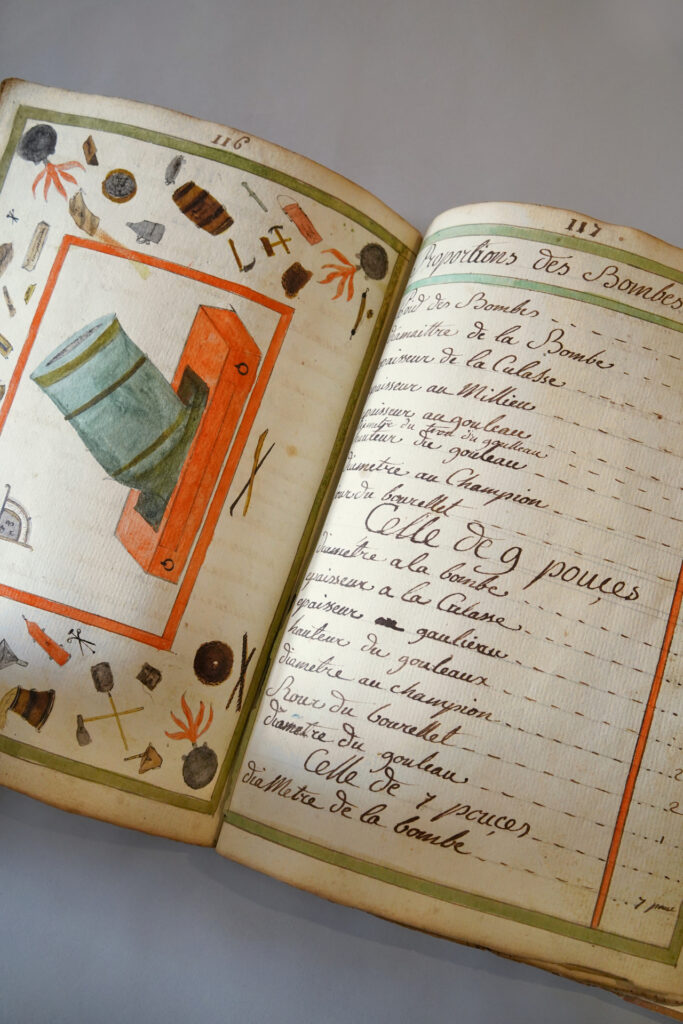 116
117
Proportions des Bombes
des Bombes
diamaittre de la Bombe
epaisseur de la Culasse
epaisseur au Millieu
epaisseur au gouleau
diametre du trou du gouleau
hauteur du gouleau
diametre au Champion
tour du bourellet
Celle de 9 pouçes
diamétre a la bombe
epaisseur a la Culasse
epaisseur gaulieau
hauteur du gouleaux
diametre au champion
Rour du bourellet
diametre du gouleau
Celle de 7 pouçes
diaMetre de la bombe
2
2
1
7 pouc